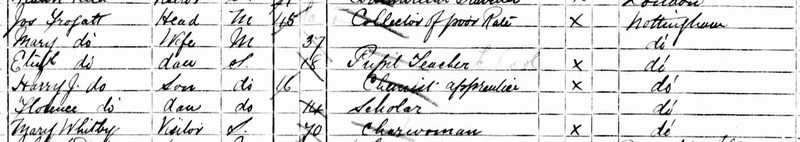 Visitor London
Jos Frogatt Head M 45 Collector of poor Rates X Nottingham
Mary do Wife M 37 do
Elizth do dau S. 18 Pupil Teacher X do
Harry J. do Son do 16 Chemist apprentice X do
Florence do dau do 14 Scholar do
Mary Whitby Visitor S. 70 Charwoman X do